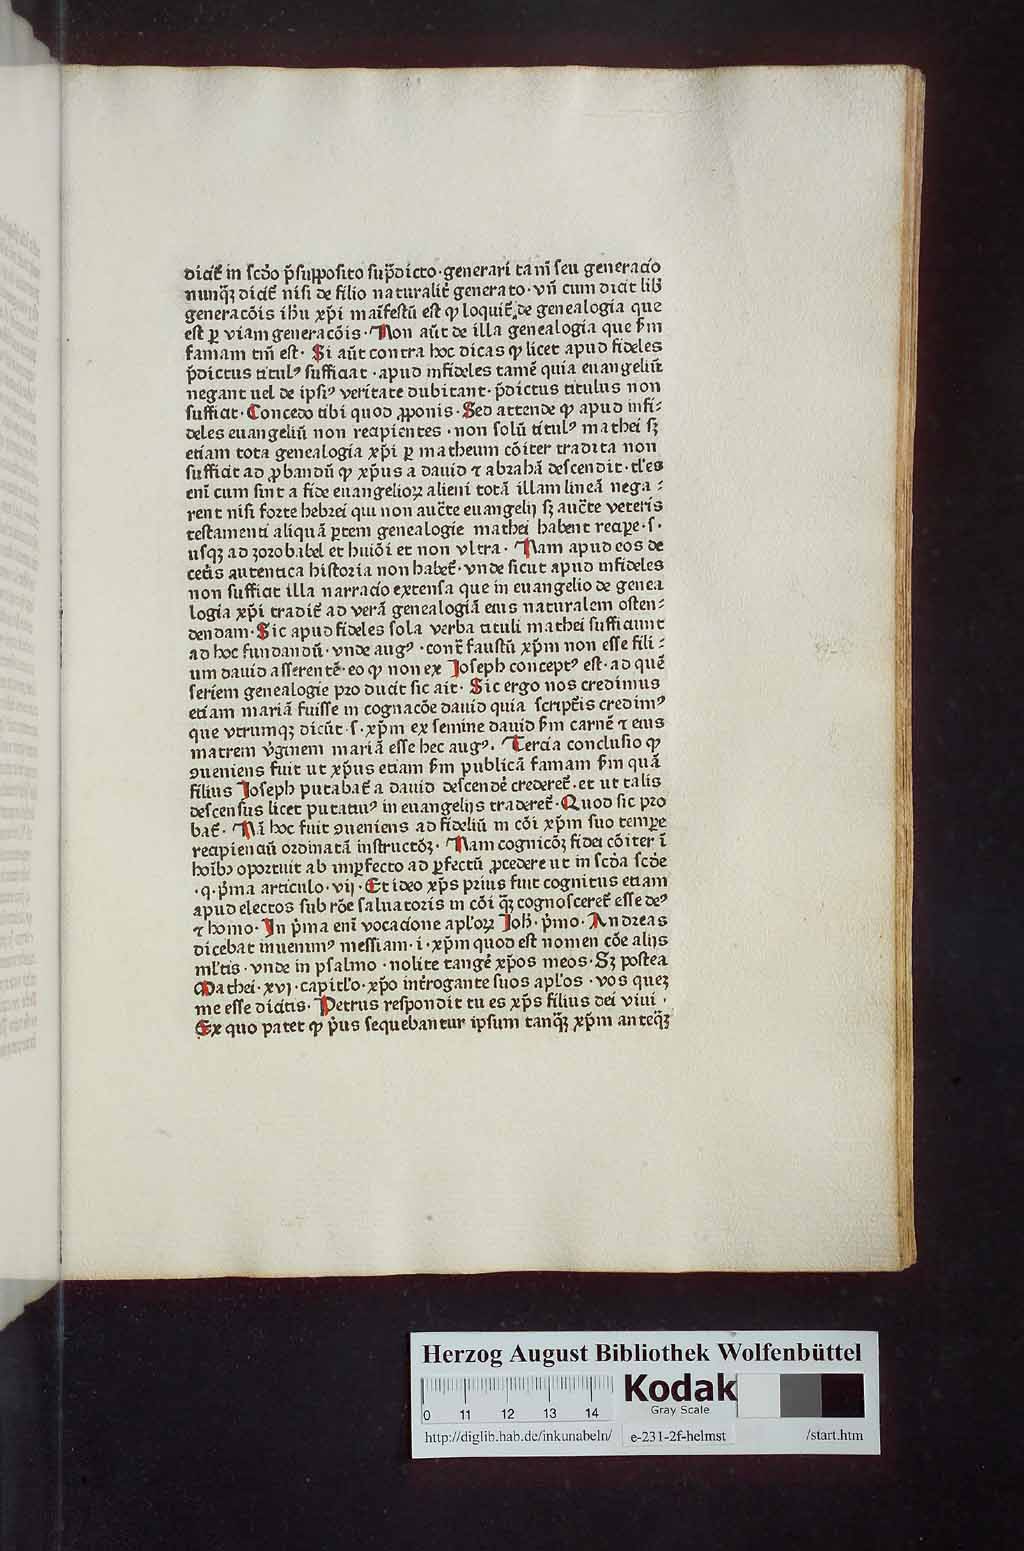 dicit̃ in scd̃o p̃supposito sup̃dicto·generari tam̃ seu generacio
nunq̃ꝫ dicit̃ nisi de filio naturalit̃ generato·vñ cum dicit lib̃
generacõis ihũ xp̃i maĩfestũ est ꝙ loquit̃ de genealogia que
est ꝑ viam generacõis·Non aũt de illa genealogia que fm̃
famam tm̃ est·Si aũt contra hoc dicas ꝙ licet apud fideles
p̃dictus titulꝰ sufficiat·apud infideles tamẽ quia euangeliũ
negant uel de ipsiꝰ veritate dubitant·p̃dictus titulus non
sufficit·Concedo tibi quod ꝓponis·Sed attende ꝙ apud infi⸗
deles euangeliũ non recipientes·non solũ titulꝰ mathei sꝫ
etiam tota genealogia xp̃i ꝑ matheum cõiter tradita non
sufficit ad ꝓbandũ ꝙ xp̃us a dauid ⁊ abrahã descendit·tl̃es
enĩ cum sint a fide euangelioꝝ alieni totã illam lineã nega⸗
rent nisi forte hebrei qui non auct̃e euangelij sꝫ auct̃e veteris
testamenti aliquã ꝑtem genealogie mathei habent reciꝑe·s·
usqꝫ ad zorobabel et huiõi et non vltra·Nam apud eos de
cet̃is autentica historia non habet̃·vnde sicut apud infideles
non sufficit illa narracio extensa que in euangelio de genea
logia xp̃i tradit̃ ad verã genealogiã eius naturalem osten⸗
dendam·Sic apud fideles sola verba tituli mathei sufficiunt
ad hoc fundandũ·vnde augꝰ·cont̃ faustũ xp̃m non esse fili⸗
um dauid asserentẽ·eo ꝙ non ex Joseph conceptꝰ est·ad quẽ
seriem genealogie pro ducit sic ait·Sic ergo nos credimus
etiam mariã fuisse in cognacõe dauid quia script̃is credimꝰ
que vtrumqꝫ dicũt·s·xp̃m ex semine dauid fm̃ carnẽ ⁊ eius
matrem ṽginem mariã esse hec augꝰ·Tercia conclusio ꝙ
ꝯueniens fuit ut xp̃us etiam fm̃ publicã famam fm̃ quã
filius Joseph putabat̃ a dauid descendẽ crederet̃·et ut talis
descensus licet putatiuꝰ in euangelijs traderet̃·Quod sic pro
bat̃·Nã hoc fuit ꝯueniens ad fideliũ in cõi xp̃m suo temꝑe
recipienciũ ordinatã instructõꝫ·Nam cognicõꝫ fidei cõiter ĩ
hoĩbꝰ oportuit ab imꝑfecto ad ꝑfectũ ꝓcedere ut in scd̃a scd̃e
·q·p̃ma articulo·vij·Et ideo xp̃s prius fuit cognitus etiam
apud electos sub rõe saluatoris in cõi q̃ꝫ cognosceret̃ esse deꝰ
⁊ homo·In p̃ma enĩ vocacione apl̃oꝝ Joh̃·p̃mo·Andreas
dicebat inuenimꝰ messiam·i·xp̃m quod est nomen cõe alijs
ml̃tis·vnde in psalmo·nolite tangẽ xp̃os meos·Sꝫ postea
Mathei·xvj·capitl̃o·xp̃o int̃rogante suos apl̃os·vos queꝫ
me esse dicitis·Petrus respondit tu es xp̃s filius dei viui·
Ex quo patet ꝙ p̃us sequebantur ipsum tanq̃ꝫ xp̃m anteq̃ꝫ
Herzog August Bibliothek Wolfenbüttel
0 11 12 13 14
Kodak
Gray Scale
http://diglib.hab.de/inkunabeln/ e-231-2f-helmst /start.htm